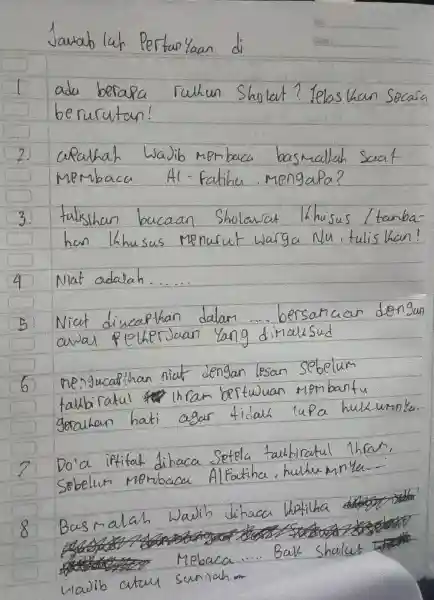 Jawablah Pertanyaan di
1. ada berapa rukun Sholat? Jelaskan Secara
berurutan!
2. apakah wajib membaca basmallah saat
Membaca Al-Fatiha. Mengapa?
3. tuliskan bacaan Sholawat Khusus / tamba-
han Khusus Menurut warga Nu, tuliskan!
4 Niat adalah.......
5 Niat diucapkan dalam .... bersamaan dengan
awal pekerjaan yang dimaksud
6 mengucapkan niat dengan lesan sebelum
takbiratul ihram bertujuan Membantu
gerakan hati agar tidak lupa hukumnya..
7 Do'a iftitah dibaca Setela takbiratul Ihram,
Sebelum Membaca AlFatiha, hukumnya...
8 Basmalah Wajib dibaca Ketika
Mebaca..... Baik Shalat
wajib atau sunnah